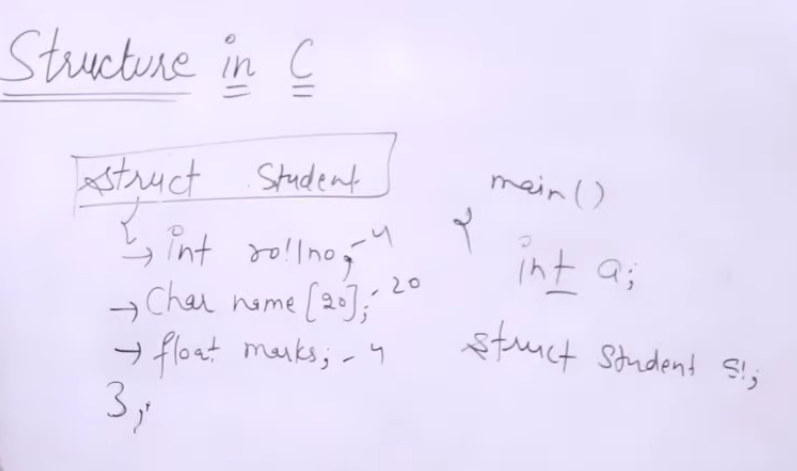 Structure in C
struct Student
{
→ int rollno; - 4
→ Char name [20]; - 20
→ float marks; - 4
};
main()
{
int a;
struct Student s1;